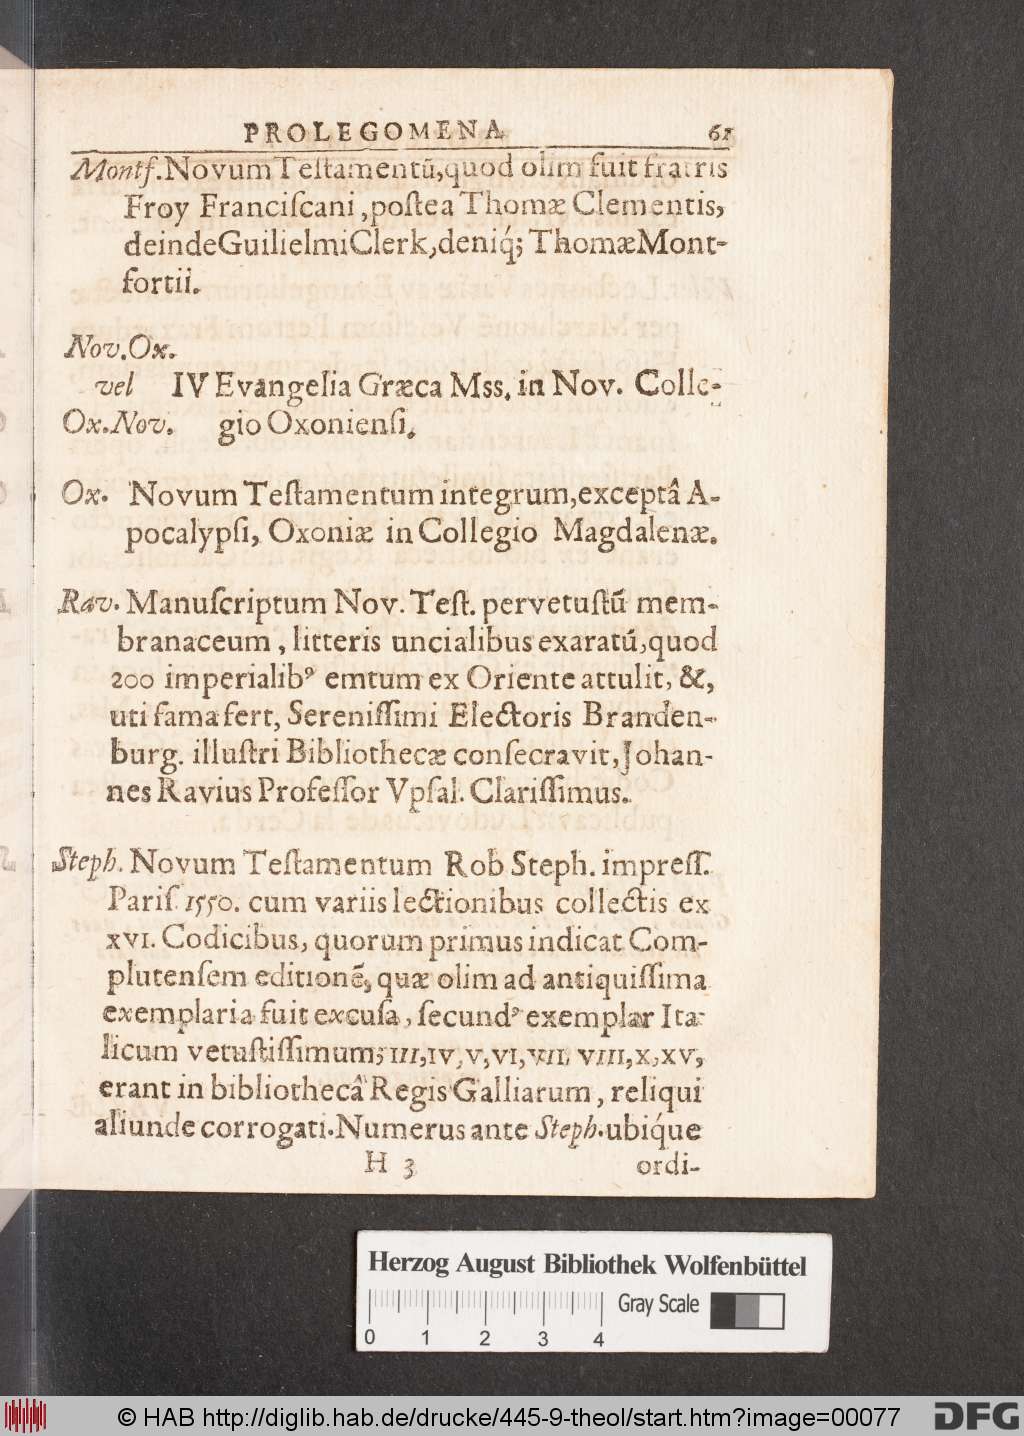 PROLEGOMENA 61
Montf. Novum Teſtamentū, quod olim fuit fratris
Froy Franciſcani, poſtea Thomæ Clementis,
deinde Guilielmi Clerk, deniq́; Thomæ Mont-
fortii.
Nov. Ox.
vel IV Evangelia Græca Mss. in Nov. Colle-
Ox. Nov. gio Oxonienſi.
Ox. Novum Teſtamentum integrum, exceptâ A-
pocalypſi, Oxoniæ in Collegio Magdalenæ.
Rav. Manuſcriptum Nov. Teſt. pervetuſtū mem-
branaceum, litteris uncialibus exaratū, quod
200 imperialibꝰ emtum ex Oriente attulit, &,
uti fama fert, Sereniſſimi Electoris Branden-
burg. illuſtri Bibliothecæ conſecravit, Johan-
nes Ravius Profeſſor Vpſal. Clariſſimus.
Steph. Novum Teſtamentum Rob Steph. impreſſ.
Pariſ 1550. cum variis lectionibus collectis ex
XVI. Codicibus, quorum primus indicat Com-
plutenſem editionē, quæ olim ad antiquiſſima
exemplaria fuit excuſa, ſecundꝰ exemplar Ita-
licum vetuſtiſſimum; III, IV, V, VI, VII, VIII, X, XV,
erant in bibliothecâ Regis Galliarum, reliqui
aliunde corrogati. Numerus ante Steph. ubiq́ue
H 3 ordi-
Herzog August Bibliothek Wolfenbüttel
Gray Scale
0 1 2 3 4
© HAB http://diglib.hab.de/drucke/445-9-theol/start.htm?image=00077 DFG